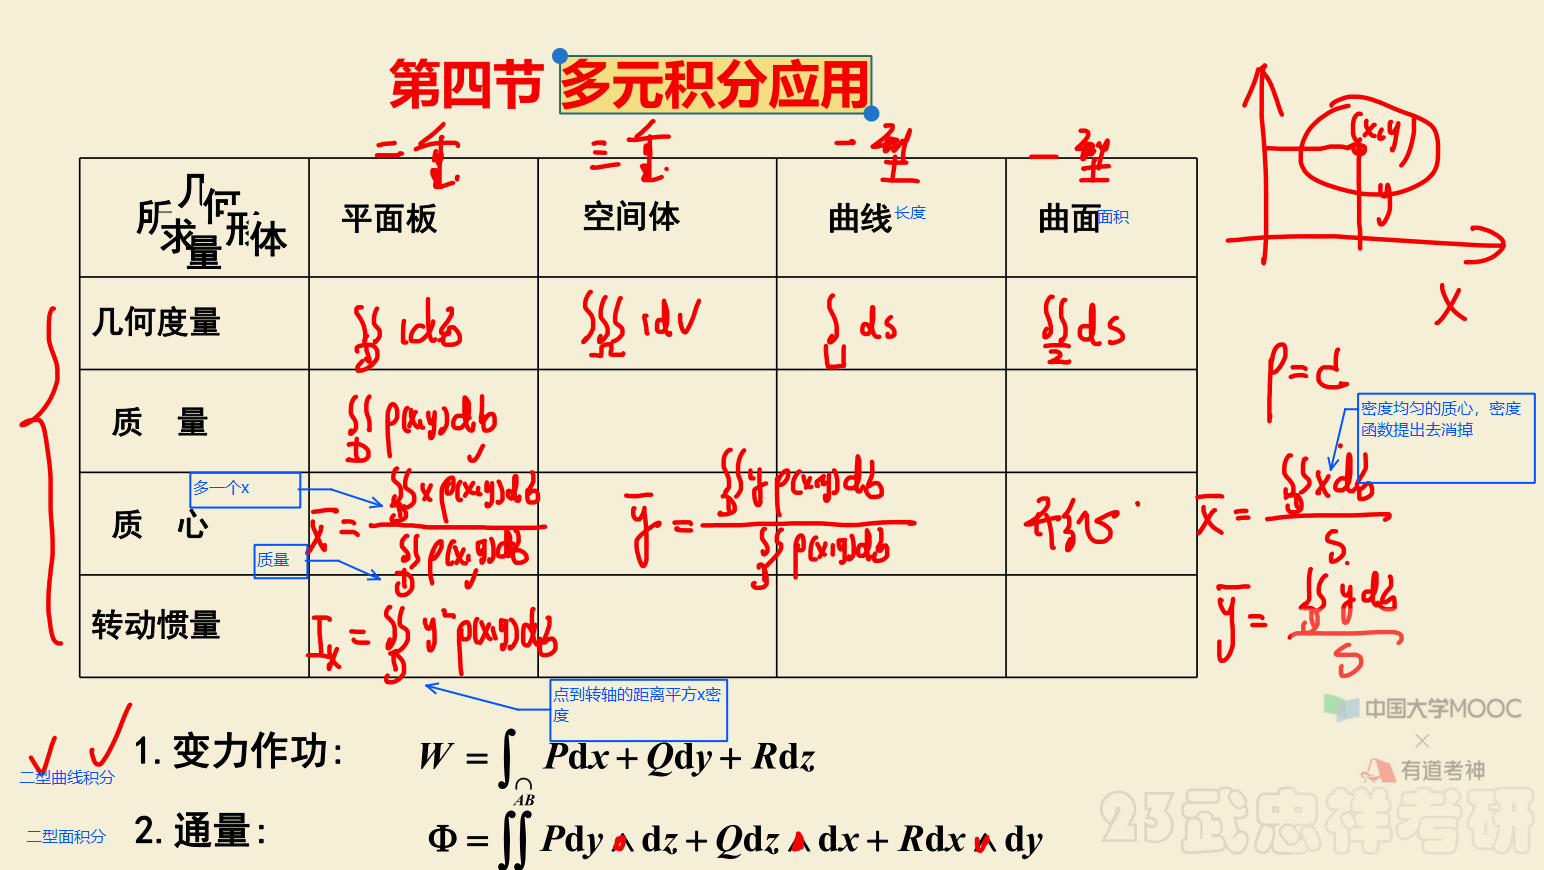 第四节 多元积分应用
二重
三重
一型
一型
几何形体
所求量
平面板
空间体
曲线 长度
曲面 面积
几何度量
∬_D 1dσ
∭_Ω 1dV
∫_L ds
∬_Σ dS
质 量
∬_D ρ(x,y)dσ
质 心
多一个x
质量
x̄ = ∬_D xρ(x,y)dσ / ∬_D ρ(x,y)dσ
ȳ = ∬_D yρ(x,y)dσ / ∬_D ρ(x,y)dσ
形心
转动惯量
I_x = ∬_D y²ρ(x,y)dσ
点到转轴的距离平方x密度
(x,y)
y
x
ρ=c
密度均匀的质心，密度
函数提出去消掉
x̄ = ∬_D xdσ / S
ȳ = ∬_D ydσ / S
二型曲线积分
1.变力作功: W = ∫_{AB} Pdx + Qdy + Rdz
二型面积分
2.通量: Φ = ∬ Pdy∧dz + Qdz∧dx + Rdx∧dy
中国大学MOOC
×
有道考神
23武忠祥考研